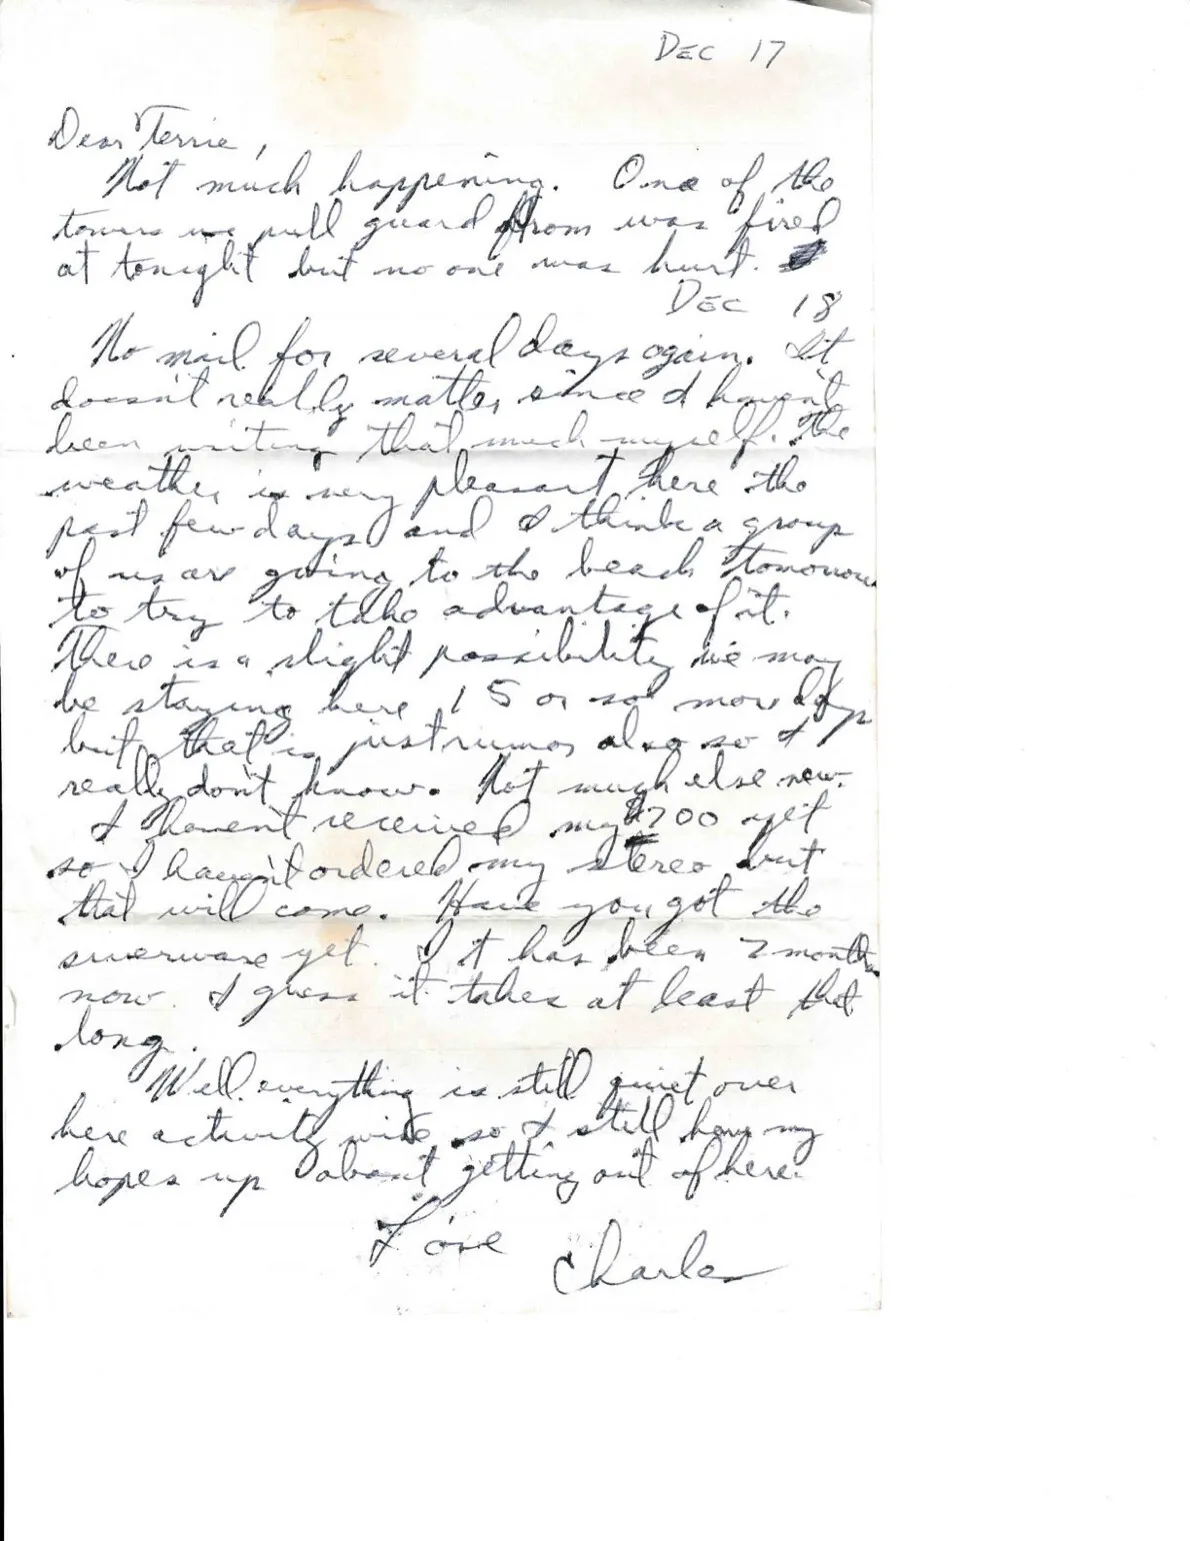 DEC 17
Dear Terrie,
Not much happening. One of the
towers we pull guard from was fired
at tonight but no one was hurt.
DEC 18
No mail for several days again. It
doesn't really matter since I haven't
been writing that much myself. The
weather is very pleasant here the
past few days and I think a group
of us are going to the beach tomorrow
to try to take advantage of it.
There is a slight possibility we may
be staying here 15 or so more days
but that is just rumor also so I
really don't know. Not much else new.
I haven't received my $700 yet
so I haven't ordered my stereo but
that will come. Have you got the
yet. It has been 2 months
now. I guess it takes at least that
long.
Well everything is still quiet over
here activity wise so I still have my
hopes up about getting out of here.
Love
Charles